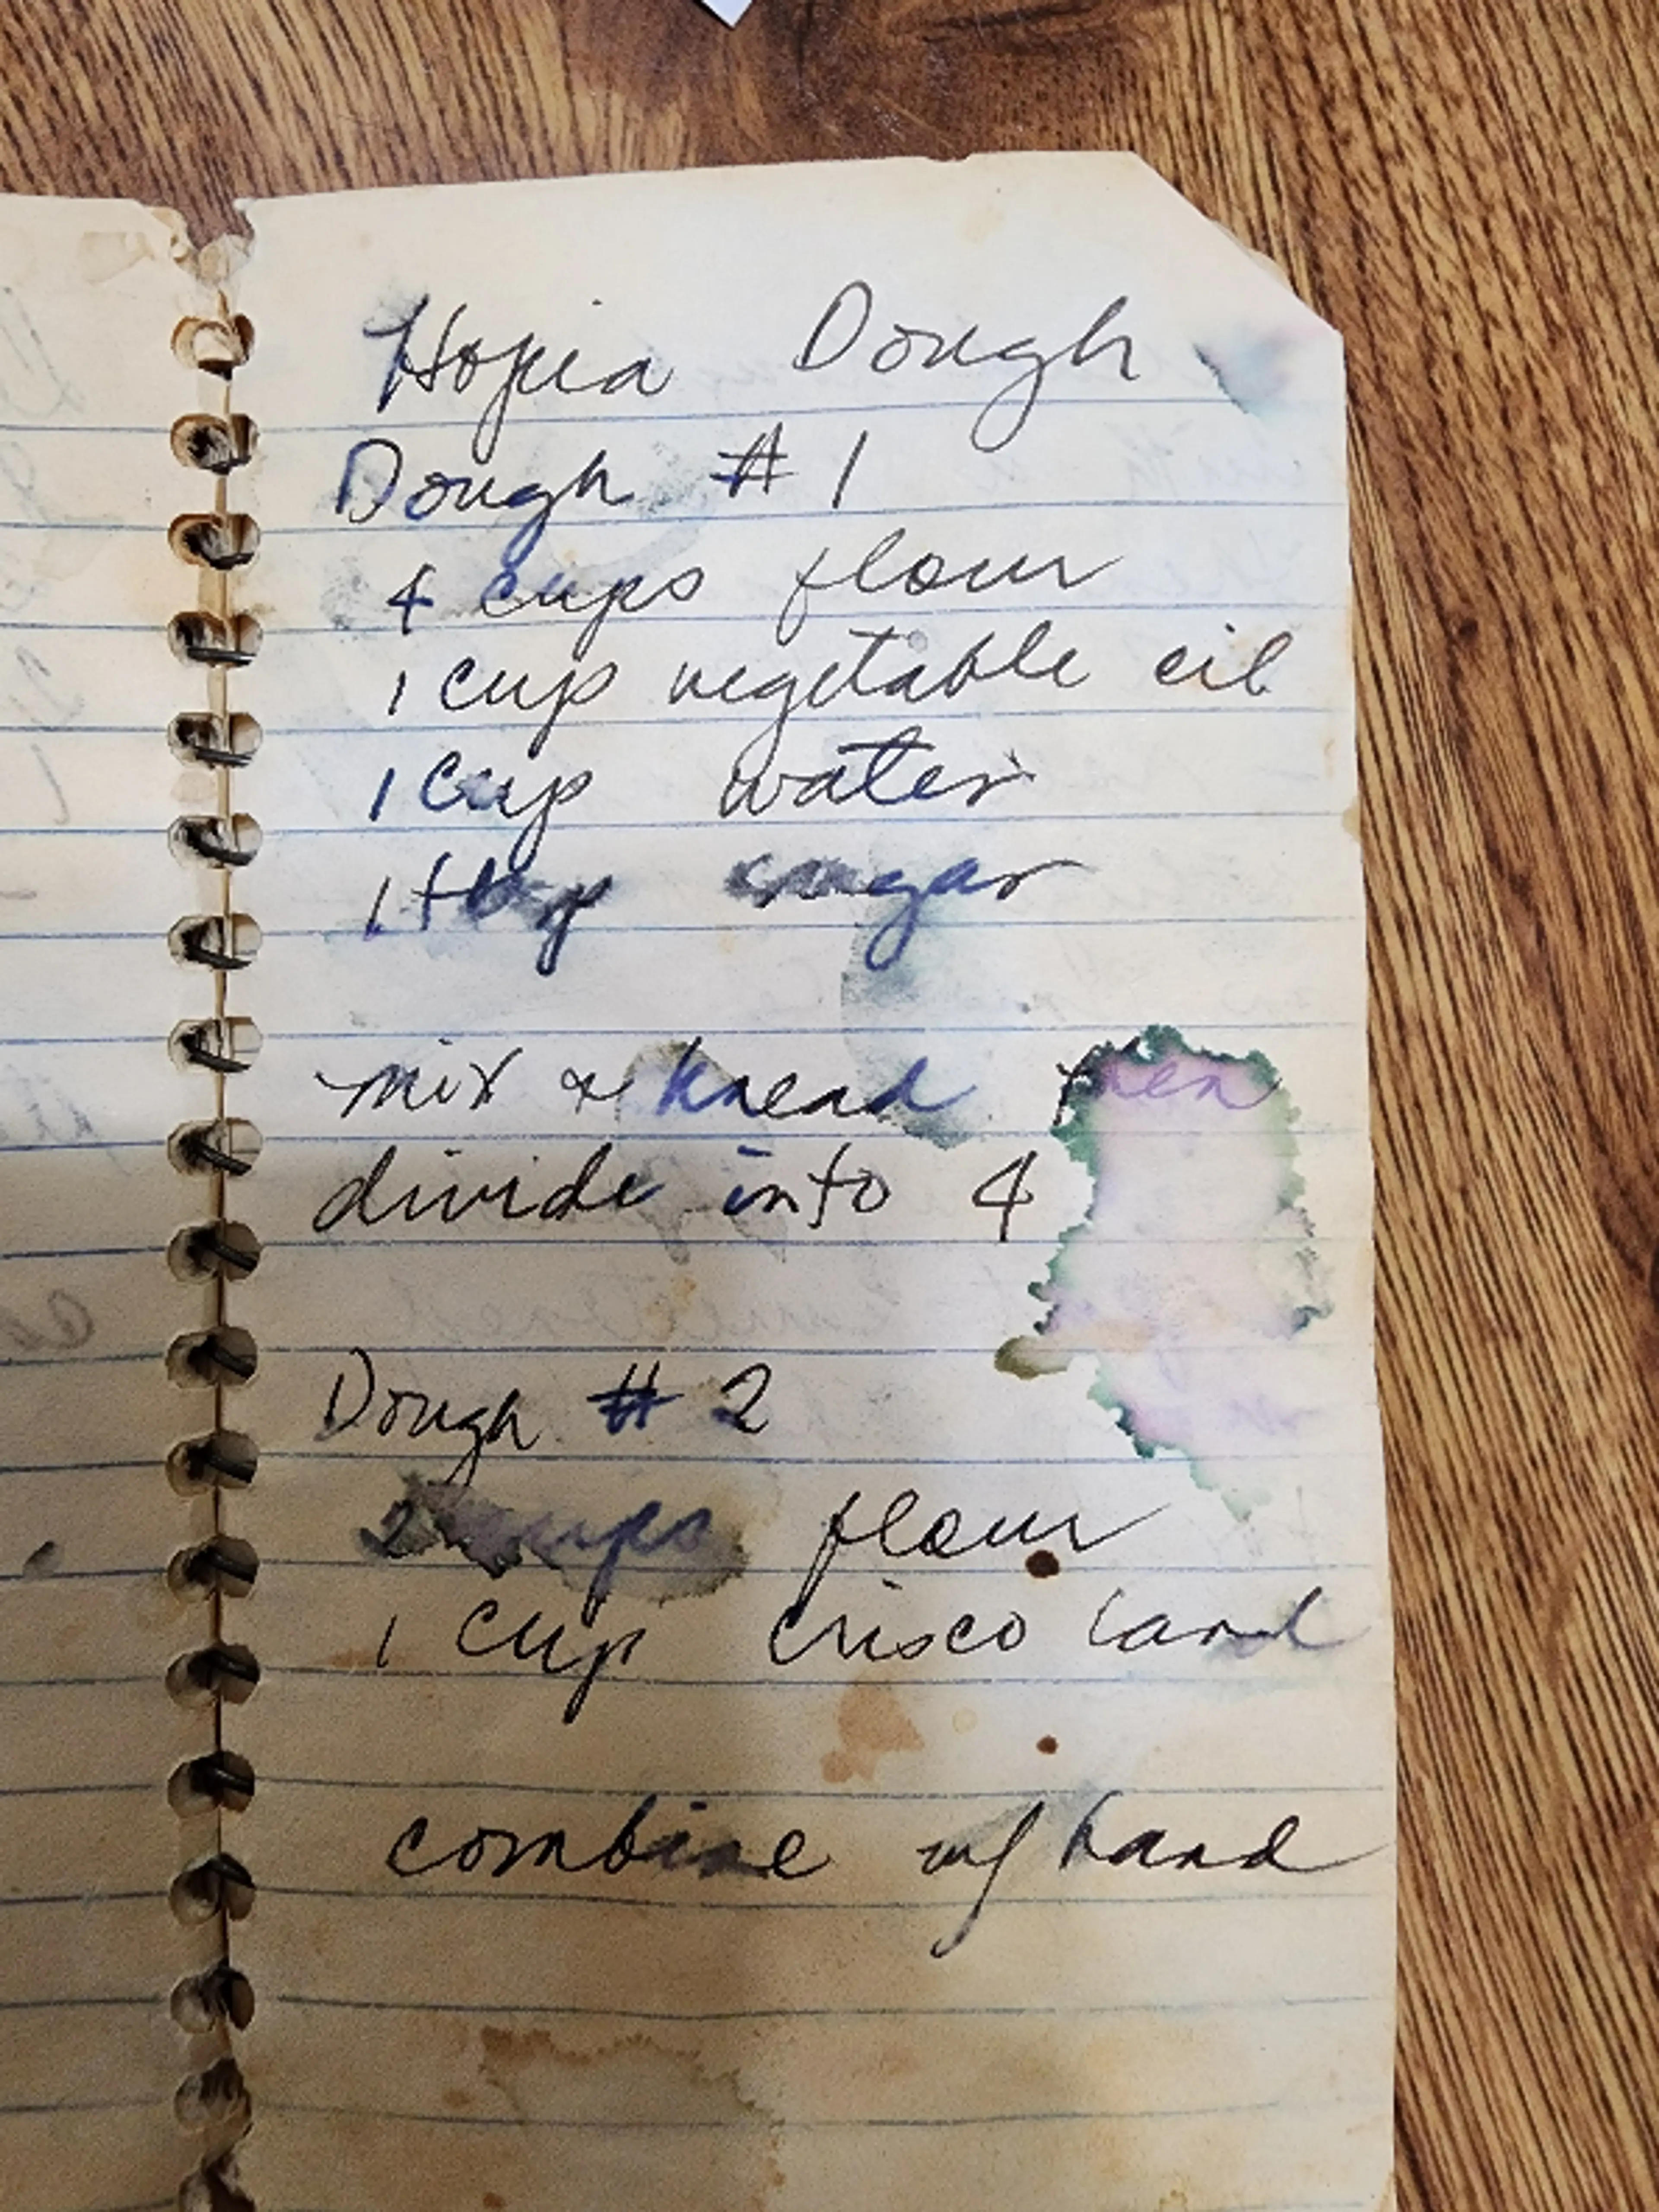 Hopia Dough
Dough # 1
4 cups flour
1 cup vegetable oil
1 cup water
1 sugar
mix & knead then
divide into 4
Dough # 2
2 cups flour
1 cup crisco lard
combine w/ hand